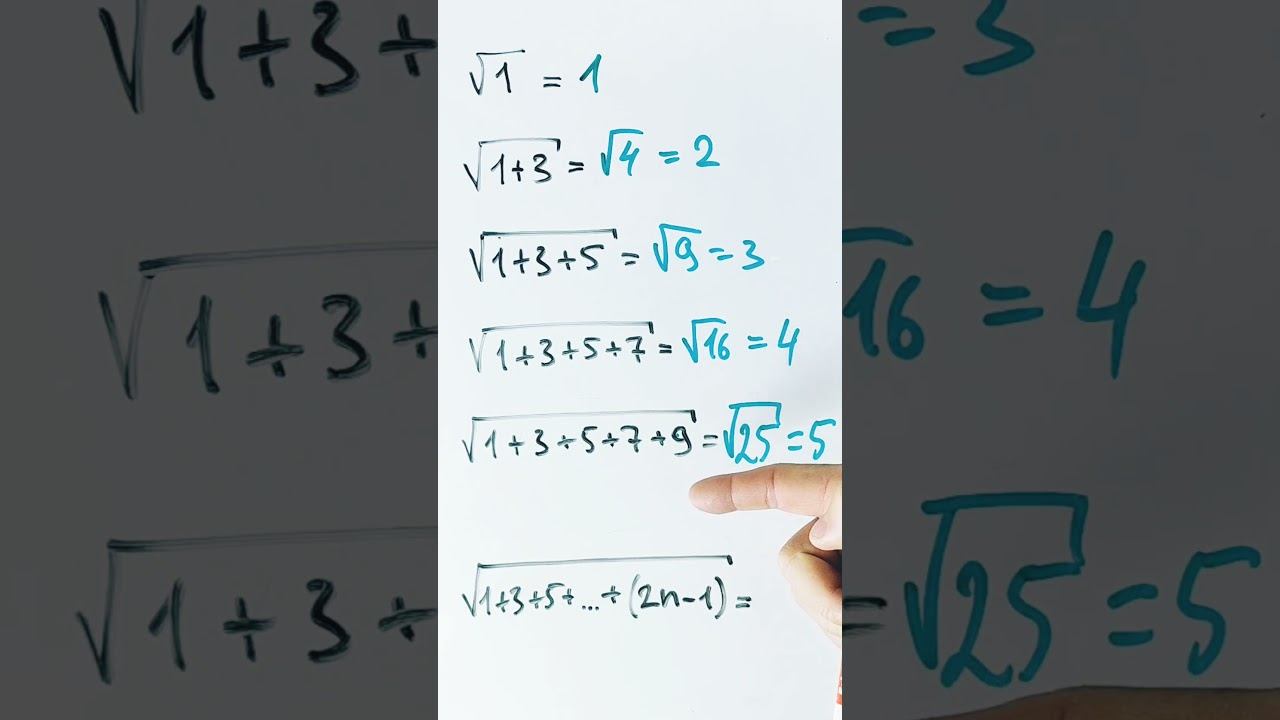 √1 = 1
√(1+3) = √4 = 2
√(1+3+5) = √9 = 3
√(1+3+5+7) = √16 = 4
√(1+3+5+7+9) = √25 = 5
√(1+3+5+...+(2n-1)) =